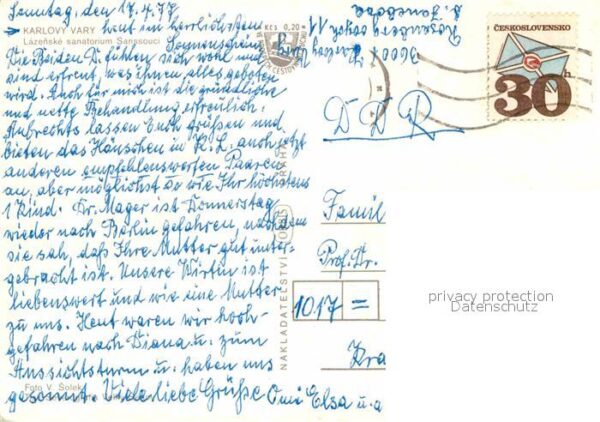 Sonntag, den 17.4.77
KARLOVY VARY heut im herrlichsten
Lázeňské sanatorium Sanssouci
Sonnenschein
Die Beiden D. fühlen sich wohl und
sind erfreut, was ihnen alles geboten
wird. Auch für mich ist die gründliche
und nette Behandlung erfreulich.
Aubrechts lassen Euch grüßen und
bieten das Häuschen in K.L. auch jetzt
anderen empfehlenswerten Paaren
an, aber möglichst so wie Ihr höchstens
1 Kind. Fr. Mager ist Donnerstag
wieder nach Berlin gefahren, nachdem
sie sah, daß Ihre Mutter gut unter-
gebracht ist. Unsere Wirtin ist
liebenswert und wie eine Mutter
zu uns. Heut waren wir hoch-
gefahren nach Diana u. zum
Aussichtsturm u. haben uns
Foto V. Šolek
gesonnt. Viele liebe Grüße Omi Elsa u. a
Kčs 0,20
NAKLADATELSTVÍ
PRAHA
36001
ČESKOSLOVENSKO
30h
DDR
Famil
Prof. Dr.
1017 =
Kra
privacy protection
Datenschutz